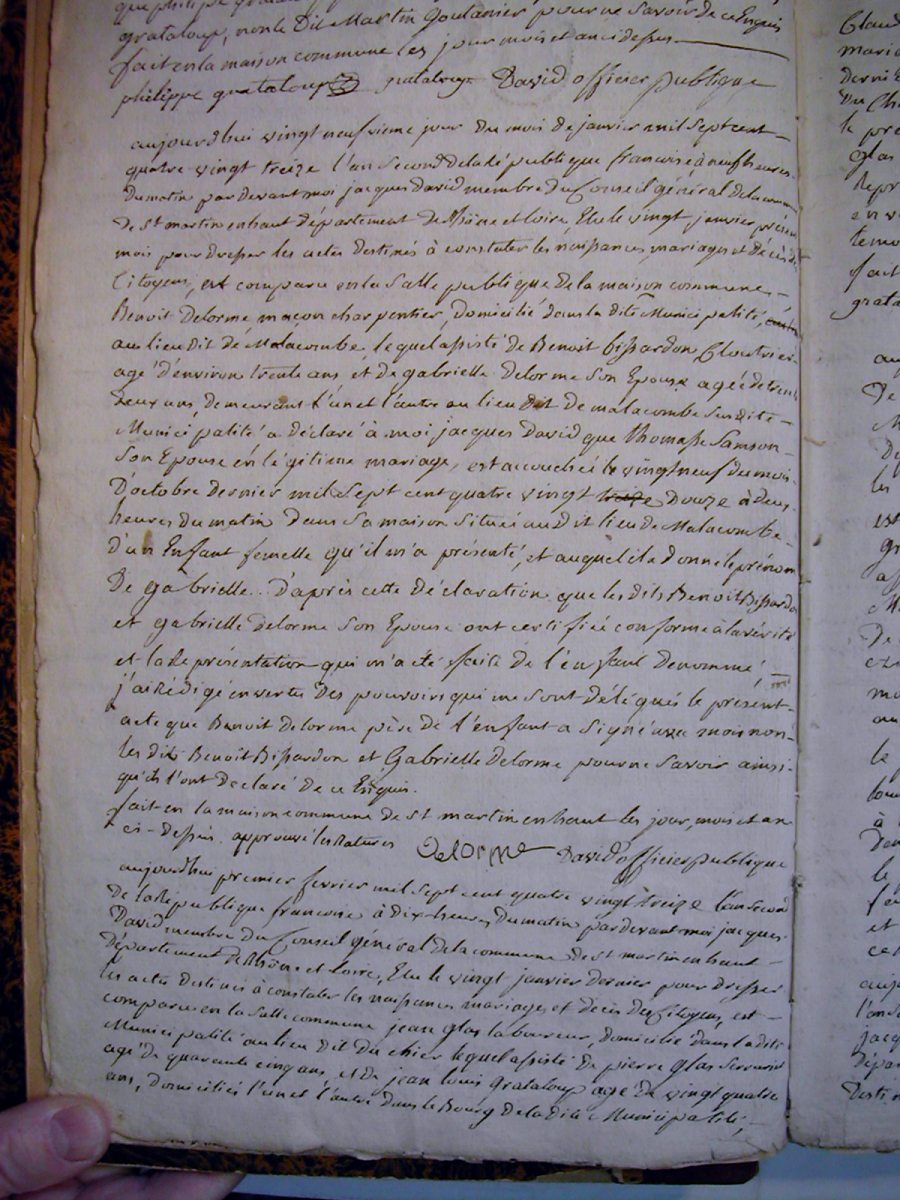 que philipe
grataloup, non le Dit Martin Goutanier pour ne savoir de ce Enquis
fait en la maison commune les jour mois et an ci dessus
philippe grataloup grataloup David officier publique
aujourdhui vingt neufvieme jour du mois de janvier mil sept cent
quatre vingt treize l'an second de la République francoise à neuf heures
du matin par devant moi jacques david membre du Conseil général de la comm
de St martin en haut département de Rhône et Loire, Elu le vingt janvier présen
mois pour dresser les actes destinés à constater les naissances mariages et décès des
Citoyens, est comparu en la Salle publique de la maison commune
Benoit Delorme maçon charpentier, domicilié dans la dite Municipalité,
au lieu dit de Malacombe, lequel assisté de Benoit bissardon Cloutrier
agé d'environ trente ans et de gabrielle Delorme Son Epouse agée de trente
deux ans, demeurant l'un et l'autre au lieu dit de malacombe Susdite
Municipalité a déclaré à moi jacques David que Thomasse Samson
Son Epouse en légitime mariage, est accouchée le vingt neuf du mois
D'octobre dernier mil Sept cent quatre vingt treize Douze à deux
heures du matin dans Sa maison Située au dit lieu de Malacombe
d'un Enfant femelle qu'il m'a présenté, et auquel il a donné le prénom
De gabrielle. D'après cette déclaration que les dits Benoit Bissardon
et gabrielle Delorme Son Epouse ont certifiée conforme à la vérité
et la Représentation qui m'a été faite de l'enfant denommé,
j'ai Rédigé en vertu des pouvoirs qui me sont délégués le présent
acte que Benoit Delorme père de l'enfant a Signé avec moi non
les dits Benoit Bissardon et Gabrielle Delorme pour ne Savoir ainsi
qu'ils l'ont declaré de ce Enquis.
fait en la maison commune de St martin en haut les jour, mois et an
ci-dessus. approuvé les Ratures Delorme David officier publique
aujourdhui premier fevrier mil Sept cent quatre vingt treize l'an second
de la République francoise à dix heures du matin par devant moi jacques
David membre du Conseil général de la commune de St martin en haut
Département de Rhône et Loire, Elu le vingt janvier dernier pour dresser
les actes destinés à constater les naissances mariages et décès des Citoyens, est
comparu en la Salle commune jean glas laboureur, domicilié dans la dite
Municipalité au lieu dit du chier lequel assisté de pierre glas Serrurier
agé de quarante cinq ans, et de jean louis Grataloup agé de vingt quatre
ans, domiciliés l'un et l'autre dans le Bourg de la dite Municipalité,